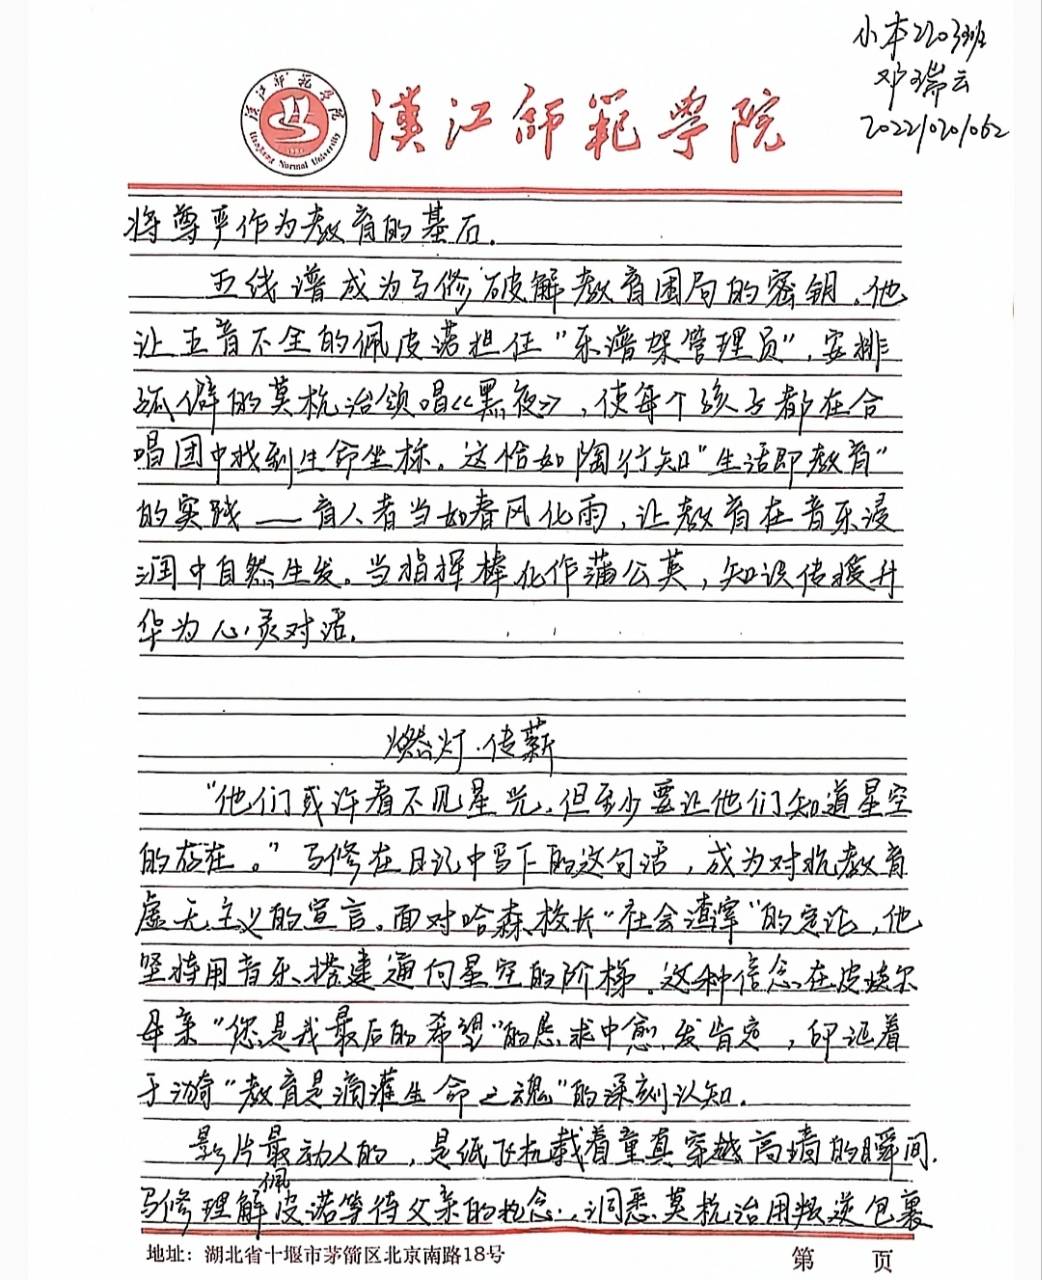 小本2203班
邓瑞云
202210201062
汉江师范学院
Hanjiang Normal University
漢江師範學院
将尊严作为教育的基石.
五线谱成为马修破解教育困局的密钥.他
让五音不全的佩皮诺担任“乐谱架管理员”,安排
孤僻的莫杭治领唱《黑夜》,使每个孩子都在合
唱团中找到生命坐标。这恰如陶行知“生活即教育”
的实践——育人者当如春风化雨,让教育在音乐浸
润中自然生发。当指挥棒化作蒲公英,知识传授升
华为心灵对话.
燃灯·传薪
“他们或许看不见星光,但至少要让他们知道星空
的存在。”马修在日记中写下的这句话,成为对抗教育
虚无主义的宣言。面对哈森校长“社会渣滓”的定论,他
坚持用音乐搭建通向星空的阶梯。这种信念在皮埃尔
母亲“您是我最后的希望”的恳求中愈发肯定,印证着
于漪“教育是滴灌生命之魂”的深刻认知.
影片最动人的,是纸飞机载着童真穿越高墙的瞬间.
马修理解佩皮诺等待父亲的执念,洞悉莫杭治用叛逆包裹
地址：湖北省十堰市茅箭区北京南路18号
第 页